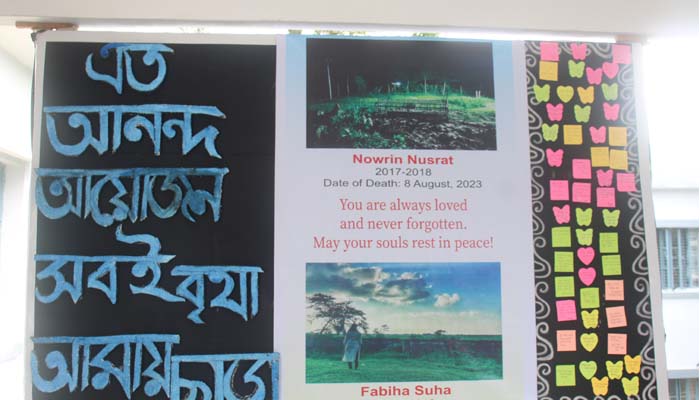 এত
আনন্দ
আয়োজন
সবই বৃথা
আমায় ছাড়া
Nowrin Nusrat
2017-2018
Date of Death: 8 August, 2023
You are always loved
and never forgotten.
May your souls rest in peace!
Fabiha Suha